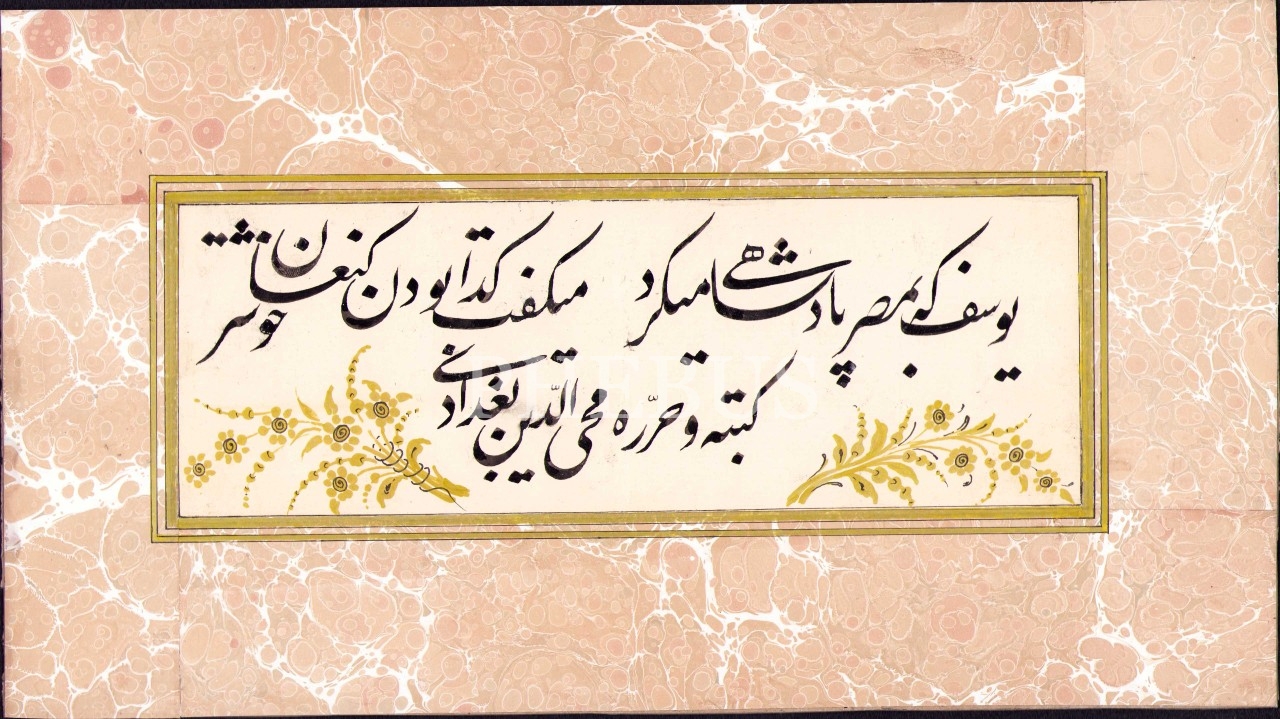 یوسف که بمصر پادشاهی میکرد میگفت گدا بودن کنعان خوشتر
کتبه و حرّره محی الدّین بغدادی
PHEBUS